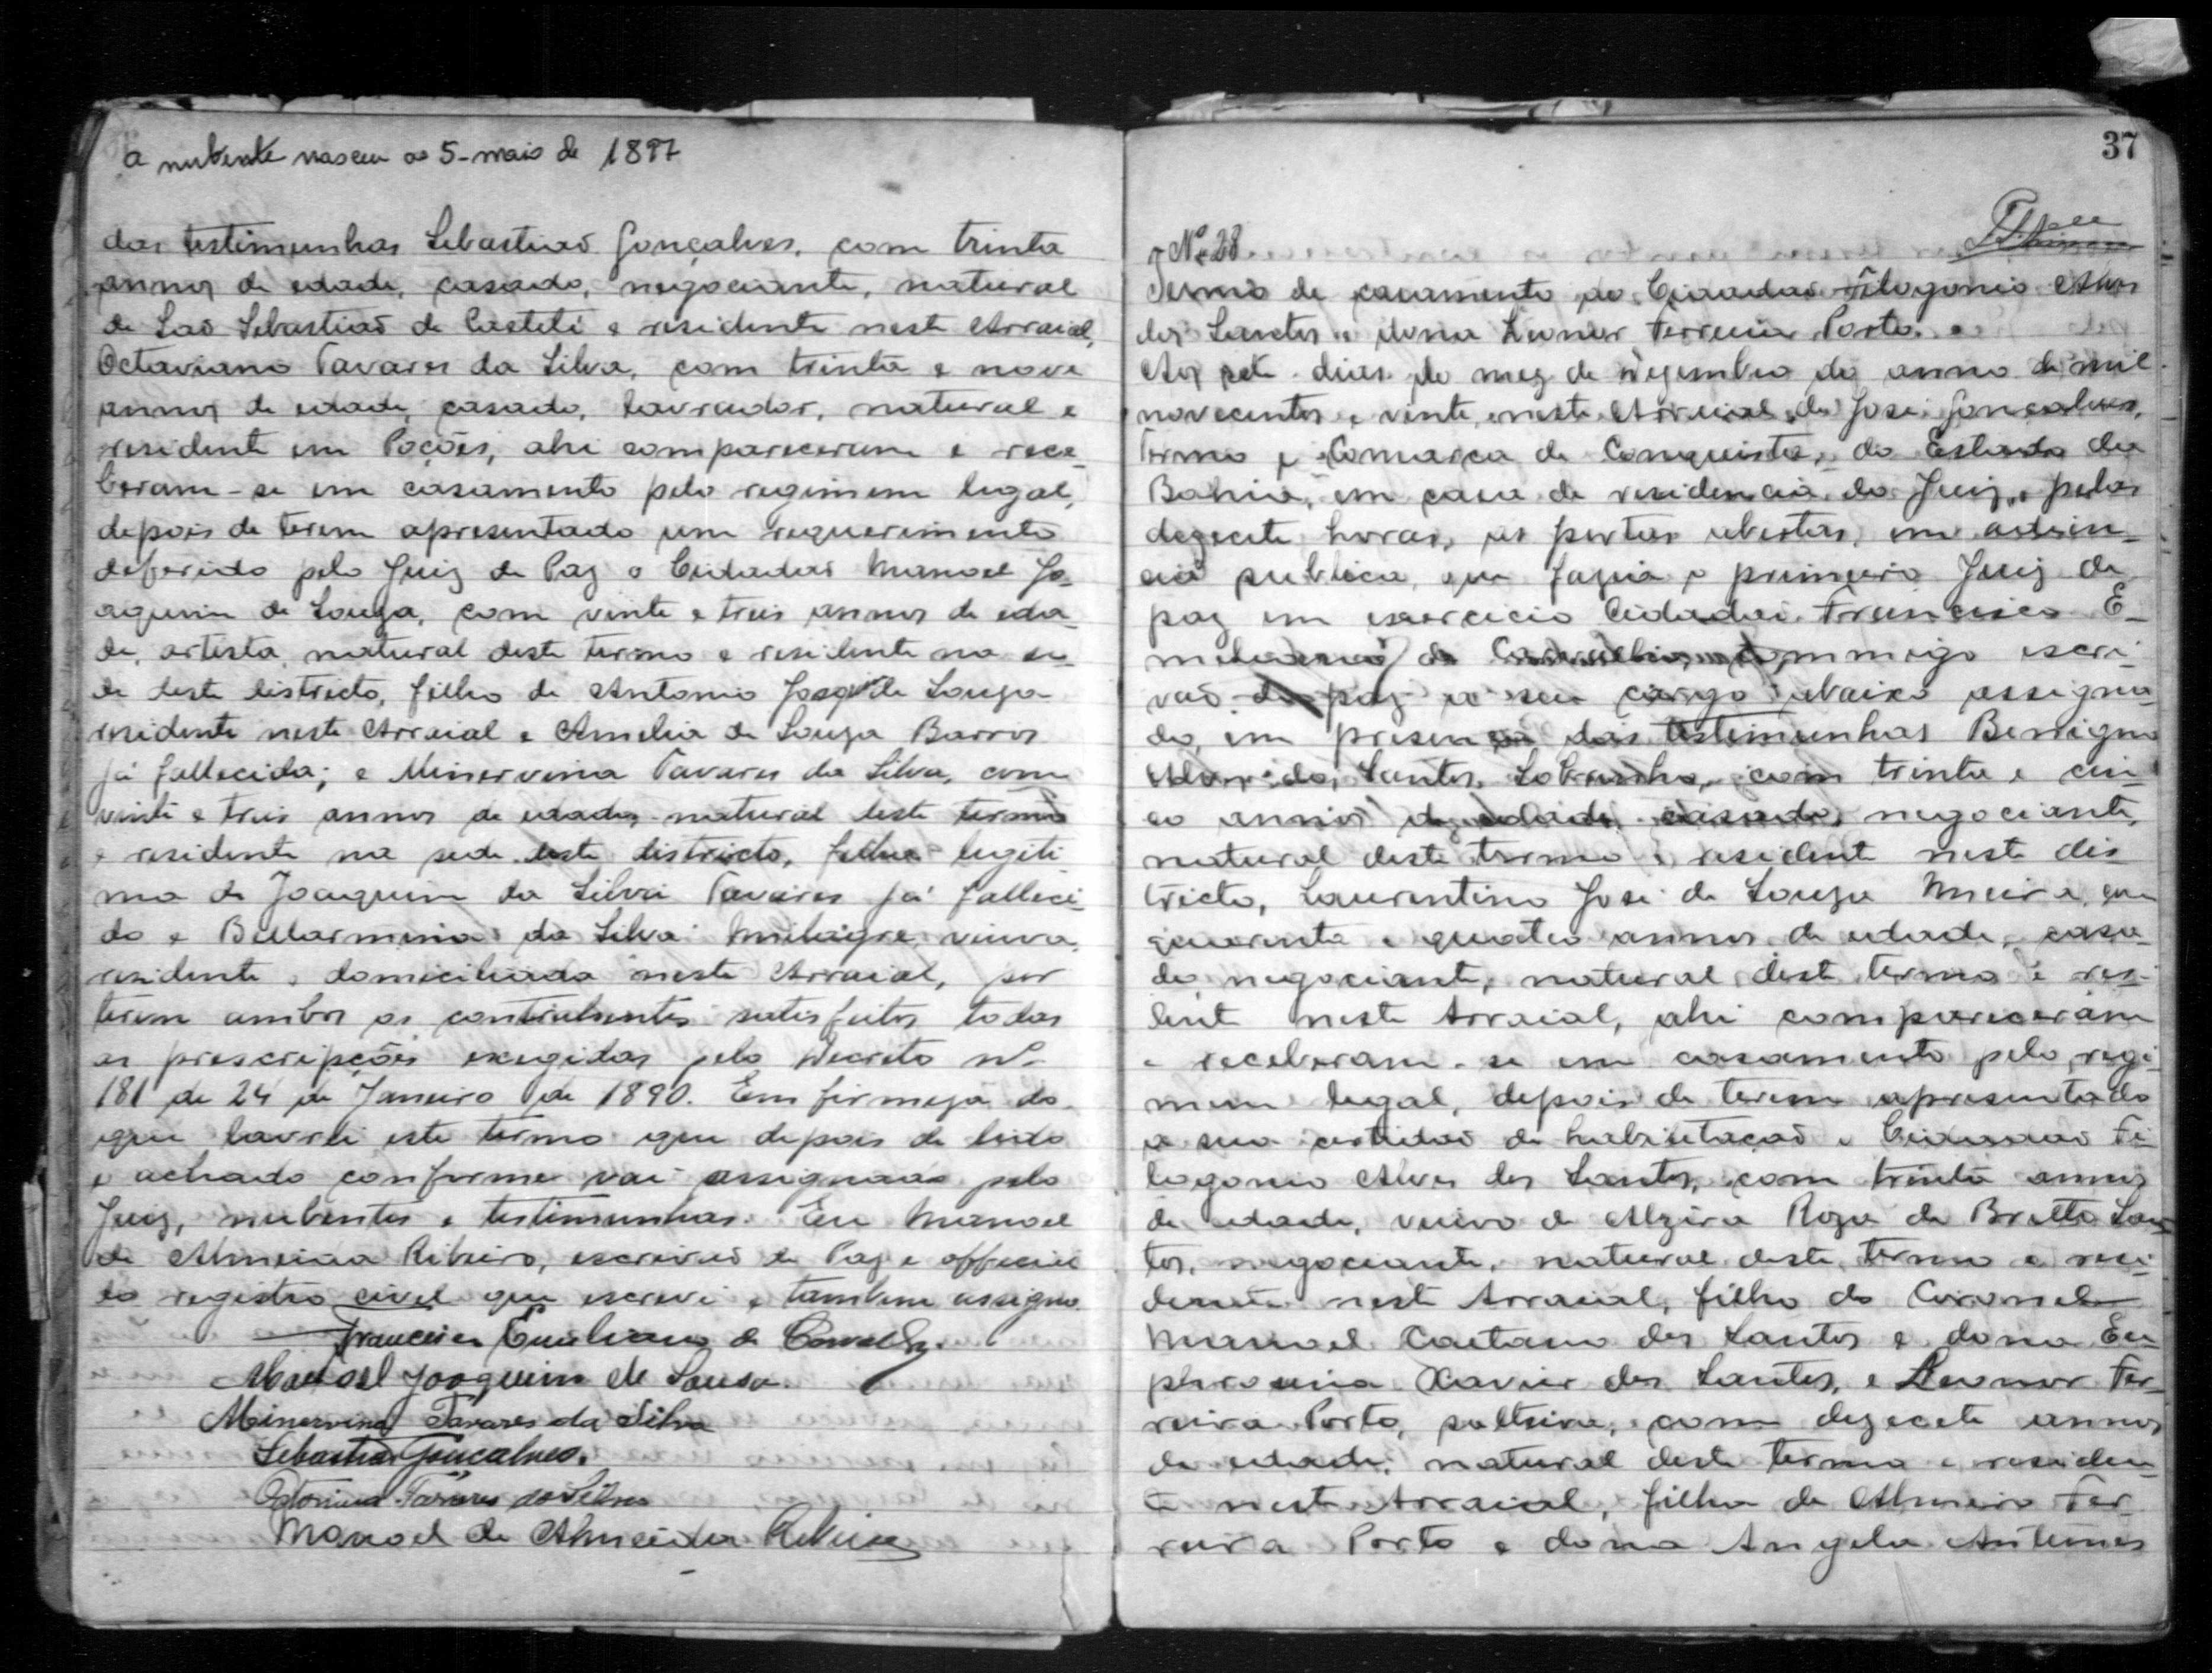 a nubente nasceu ao 5-maio de 1897
das testimunhas Sebastiaõ Gonçalves, com trinta
annos de edade, casado, negociante, natural
de Saõ Sebastiaõ de Casteté e residente neste Arraial,
Octaviano Tavares da Silva, com trinta e nove
annos de edade, casado, lavrador, natural e
residente em Poções, ahi compareceram e rece-
beram-se em casamento pelo regimem legal,
depois de terem apresentado um requerimento
deferido pelo Juiz de Paz o Cidadaõ Manoel Jo-
aquim de Souza, com vinte e treis annos de eda-
de, artista, natural deste termo e residente na se-
de deste districto, filho de Antonio José de Souza
residente neste Arraial e Amelia de Souza Barros
já fallecida; e Minervina Tavares da Silva, com
vinte e treis annos de edade, natural deste termo
e residente na sede deste districto, filha legiti-
ma de Joaquim da Silva Tavares já falleci-
do e Bellarmina da Silva Milagre, viuva,
residente e domiciliada neste Arraial, por
terem ambos os contrahentes satisfeitos todas
as prescripções exegidas pelo Decreto nº
181 de 24 de Janeiro de 1890. Em firmeza do
que lavrei este termo que depois de lido
e achado conforme vai assignado pelo
Juiz, nubentes e testimunhas. Eu Manoel
de Almeida Ribeiro, escrivaõ de Paz e official
do registro civel que escrevi e tambem assigno.
Francisco Emiliano de Carvalho.
Manoel Joaquim de Sousa.
Minervina Tavares da Silva
Sebastiaõ Gonçalves.
Tavares da Silva
Manoel de Almeida Ribeiro
37
Nº 28
Termo de casamento do Cidadaõ Filogonio Alves
dos Santos e dona Leonor Ferreira Porto.
Aos sete dias do mez de Dezembro do anno de mil
novecentos e vinte, neste Arraial de José Gonçalves,
Termo e Comarca de Conquista, do Estado da
Bahia, em casa de residencia do Juiz, pelas
dezecete horas, as portas abertas, em audien-
cia publica, que fazia o primeiro Juiz de
paz em exercicio Cidadaõ Francisco E-
meliano de Carvalho, commigo escri-
vaõ de paz a seu cargo abaixo assigna-
do, em presença das testimunhas Benigno
Alves dos Santos Sobrinho, com trinta e cin-
co annos de edade, casado, negociante,
natural deste termo e residente neste dis-
tricto, Laurentino José de Souza Meira, com
quarenta e quatro annos de edade, casa-
do, negociante, natural deste termo e resi-
dente neste Arraial, ahi compareceram
e receberam-se em casamento pelo regi-
mem legal, depois de terem apresentado
a sua certidaõ de habilitaçaõ o Cidadaõ Fi-
logonio Alves dos Santos, com trinta annos
de edade, viuvo de Alzira Roza de Britto San-
tos, negociante, natural deste termo e resi-
dente neste Arraial, filho do Coronel
Manoel Caetano dos Santos e dona Eu-
phrosina Xavier dos Santos, e Leonor Fer-
reira Porto, solteira, com dezecete annos
de edade, natural deste termo e residen-
te neste Arraial, filha de Almiro Fer-
reira Porto e dona Angela Antunes